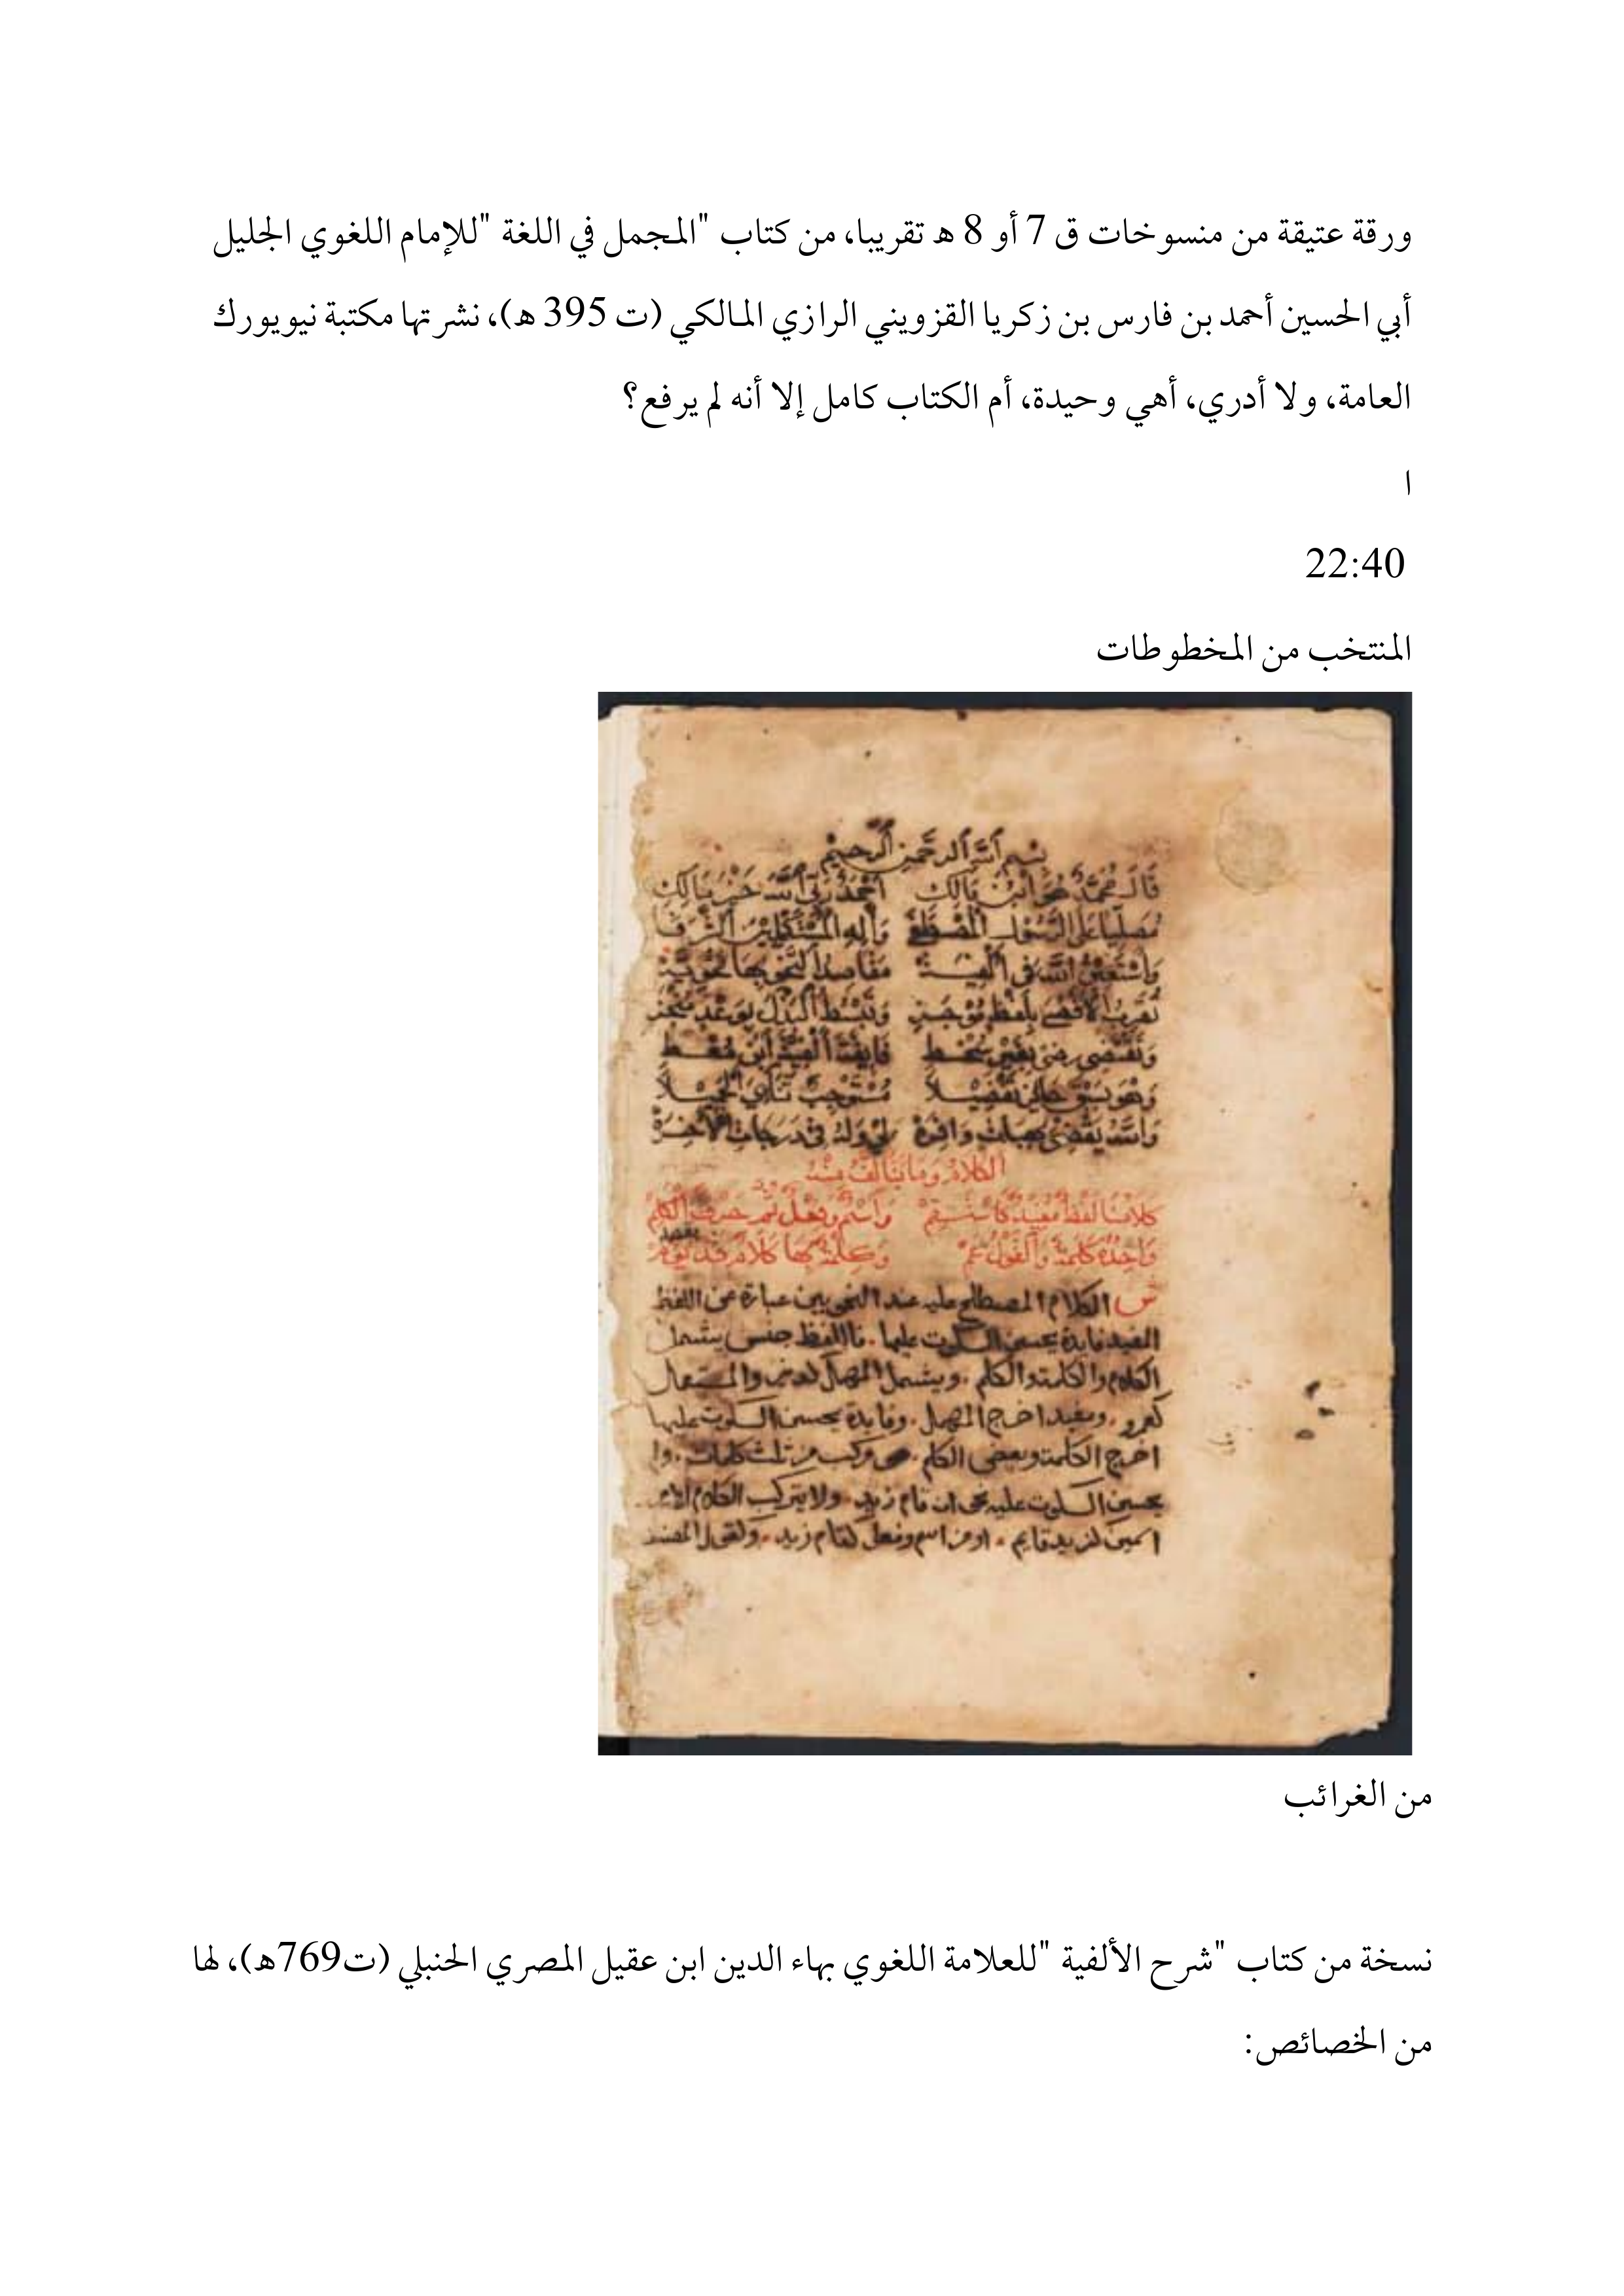 ورقة عتيقة من منسوخات ق 7 أو 8 ه تقريبا، من كتاب "المجمل في اللغة "للإمام اللغوي الجليل
أبي الحسين أحمد بن فارس بن زكريا القزويني الرازي المالكي (ت 395 ه)، نشرتها مكتبة نيويورك
العامة، ولا أدري، أهي وحيدة، أم الكتاب كامل إلا أنه لم يرفع؟
ا
22:40
المنتخب من المخطوطات
بسم الله الرحمن الرحيم
قَالَ مُحَمَّدٌ هُوَ ابْنُ مَالِكِ أَحْمَدُ رَبِّي اللَّهَ خَيْرَ مَالِكِ
مُصَلِّيًا عَلَى الرَّسُولِ الْمُصْطَفَى وَآلِهِ الْمُسْتَكْمِلِينَ الشَّرَفَا
وَأَسْتَعِينُ اللَّهَ فِي أَلْفِيَّة مَقَاصِدُ النَّحْوِ بِهَا مَحْوِيَّة
تُقَرِّبُ الْأَقْصَى بِلَفْظٍ مُوجَزِ وَتَبْسُطُ الْبَذْلَ بِوَعْدٍ مُنْجَزِ
وَتَقْتَضِي رِضًى بِغَيْرِ سُخْطِ فَائِقَةً أَلْفِيَّةَ ابْنِ مُعْطِ
وَهْوَ بِسَبْقٍ حَائِزٌ تَفْضِيلَا مُسْتَوْجِبٌ ثَنَائِيَ الْجَمِيلَا
وَاللَّهُ يَقْضِي بِهِبَاتٍ وَافِرَة لِي وَلَهُ فِي دَرَجَاتِ الْآخِرَة
الكلام وما يتألف منه
كَلَامُنَا لَفْظٌ مُفِيدٌ كَاسْتَقِمْ وَاسْمٌ وَفِعْلٌ ثُمَّ حَرْفٌ الْكَلِمْ
وَاحِدُهُ كَلِمَةٌ وَالْقَوْلُ عَمْ وَكِلْمَةٌ بِهَا كَلَامٌ قَدْ يُؤَمْ
ش الكلام المصطلح عليه عند النحويين عبارة عن اللفظ
المفيد فايدة يحسن السكوت عليها. فاللفظ جنس يشمل
الكلام والكلمة والكلم. ويشمل المهمل كديز والمستعمل
كعمرو. ومفيد اخرج المهمل. وفايدة يحسن السكوت عليها
اخرج الكلمة وبعض الكلم. وهو ما تركب من ثلث كلمات.
يحسن السكوت عليه نحو ان قام زيد. ولا يتركب الكلام الا من
اسمين كزيد قايم. او من اسم وفعل كقام زيد. وكقول المصنف
من الغرائب
نسخة من كتاب "شرح الألفية "للعلامة اللغوي بهاء الدين ابن عقيل المصري الحنبلي (ت769ه)، لها
من الخصائص: